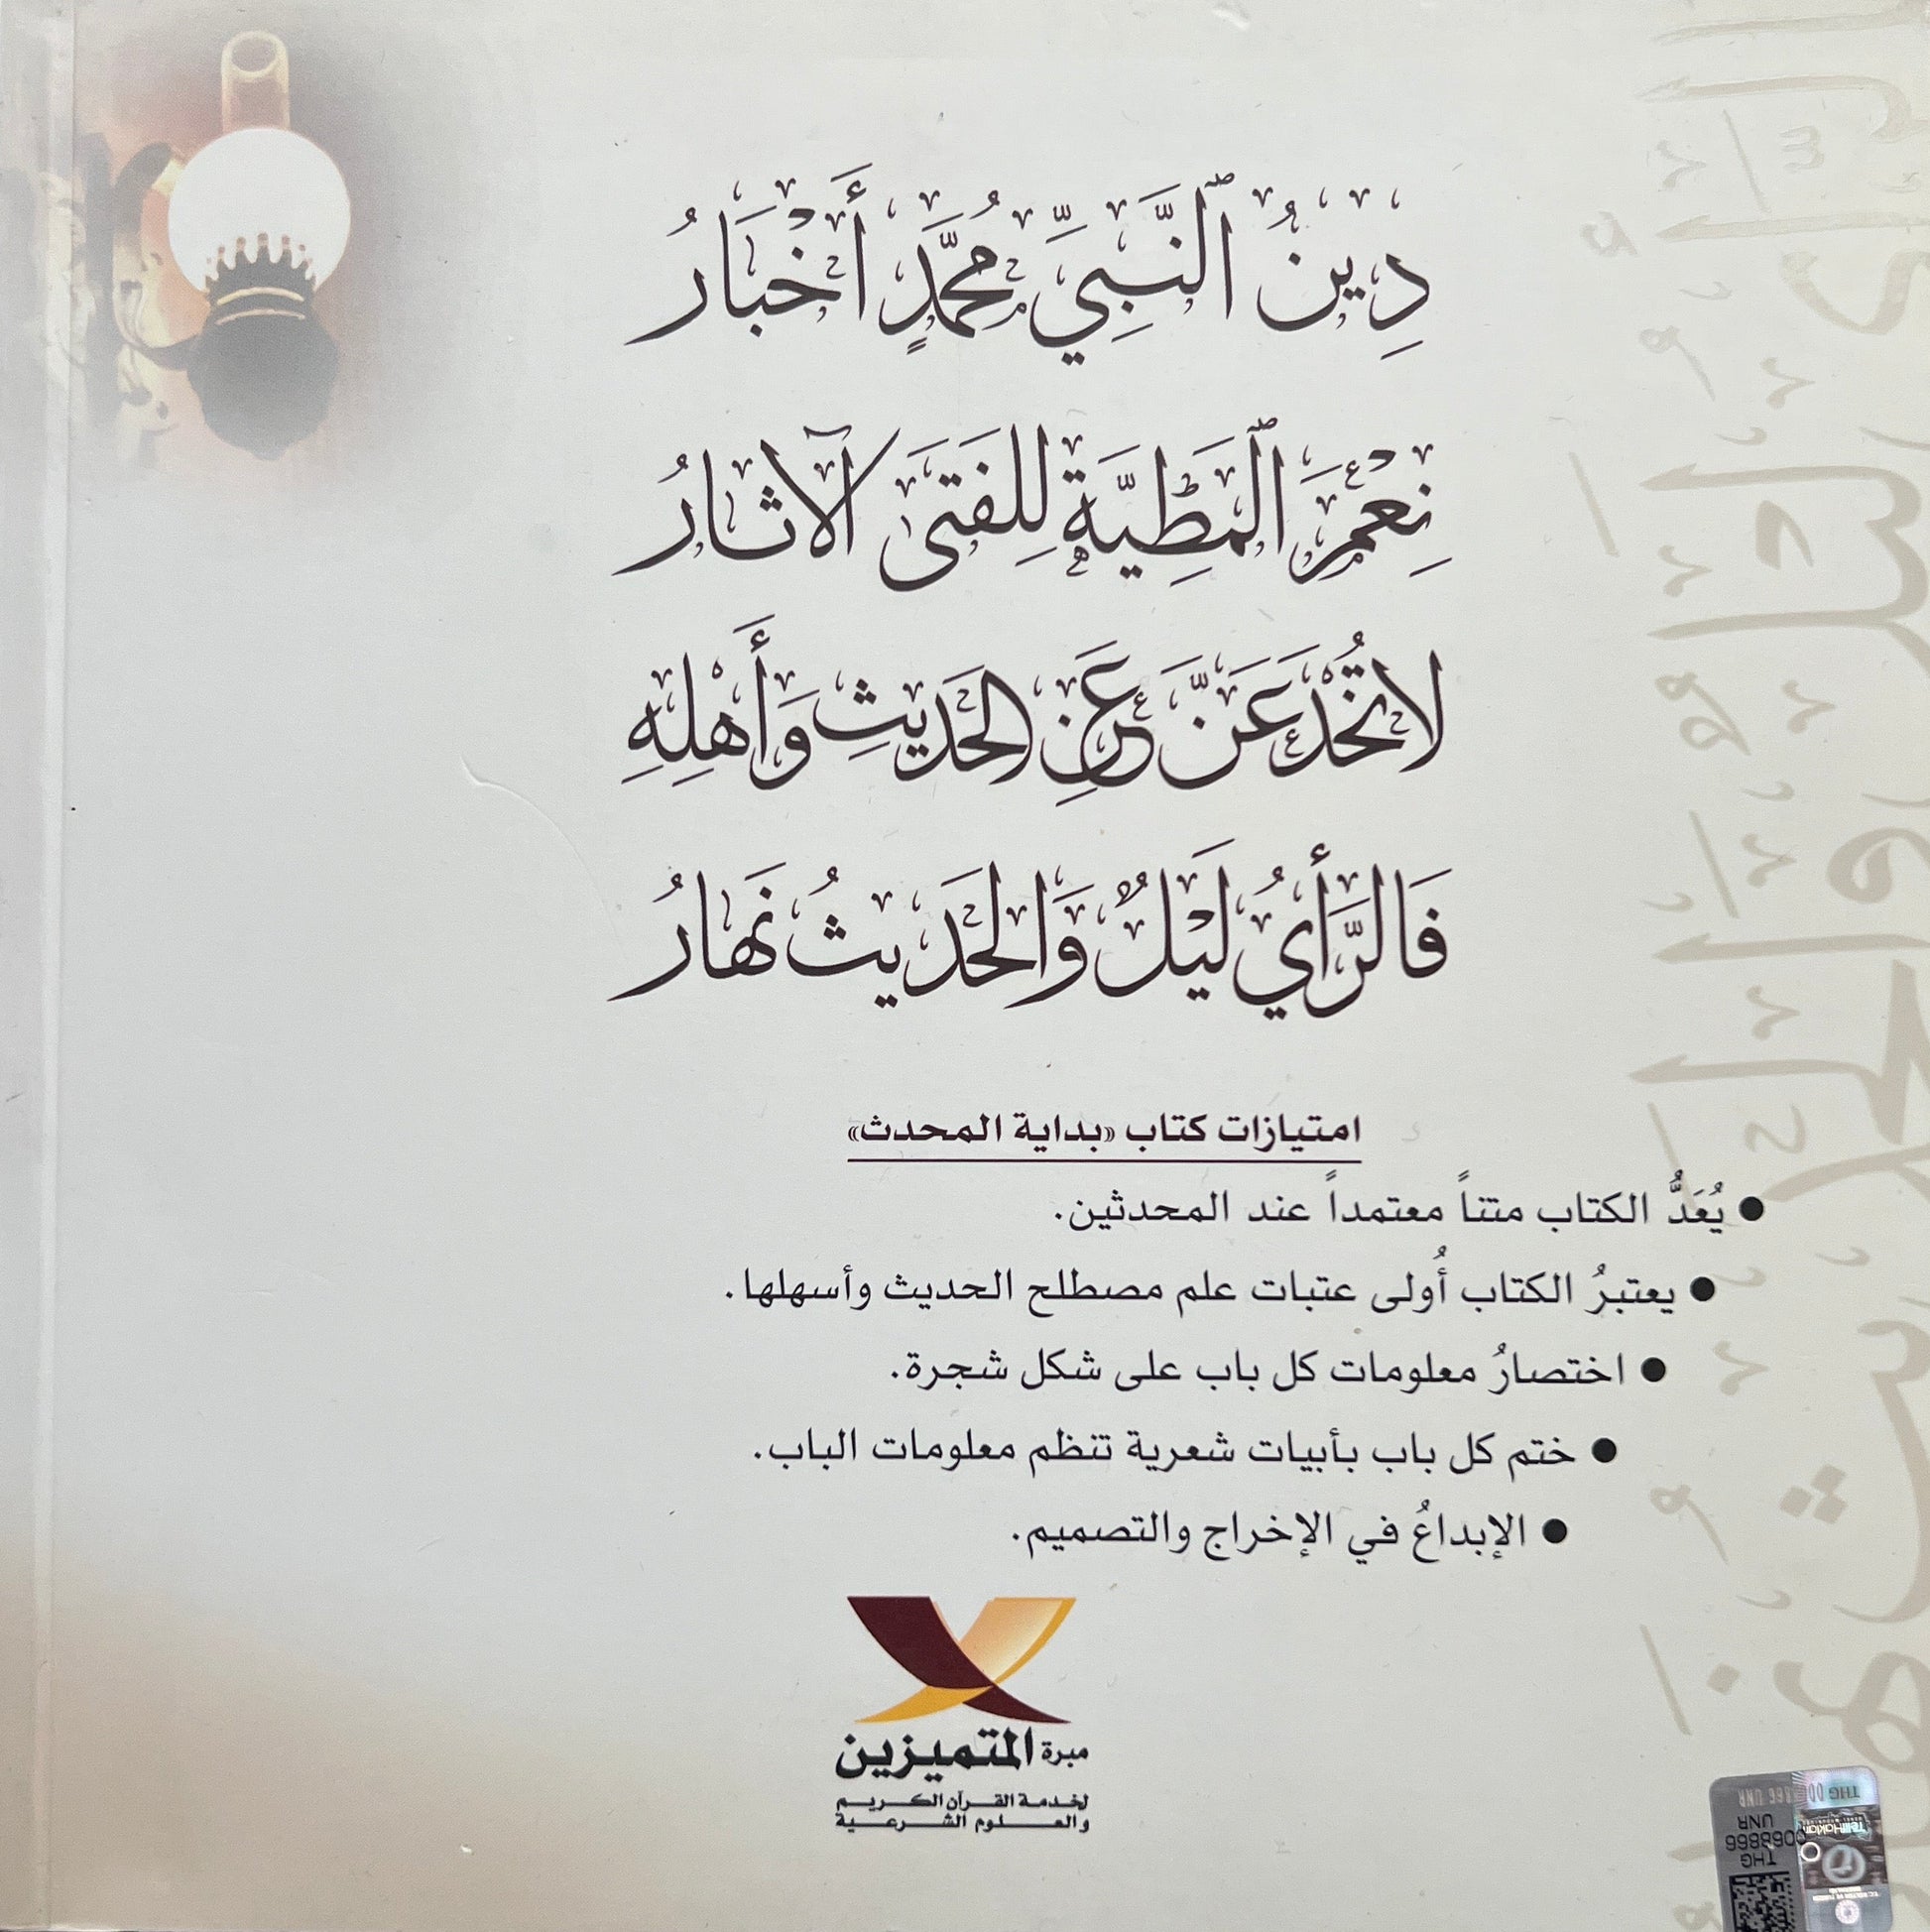 دِينُ ٱلنَّبِيِّ مُحَمَّدٍ أَخْبَارُ
نِعْمَ ٱلْمَطِيَّةُ لِلْفَتَى الآثَارُ
لَا تُخْدَعَنَّ عَنِ الْحَدِيثِ وَأَهْلِهِ
فَالرَّأْيُ لَيْلٌ وَالْحَدِيثُ نَهَارُ
امتيازات كتاب «بداية المحدث»
● يُعَدُّ الكتاب متناً معتمداً عند المحدثين.
● يعتبرُ الكتاب أُولى عتبات علم مصطلح الحديث وأسهلها.
● اختصارُ معلومات كل باب على شكل شجرة.
● ختم كل باب بأبيات شعرية تنظم معلومات الباب.
● الإبداعُ في الإخراج والتصميم.
مبرة المتميزين
لخدمة القرآن الكريم
والعلوم الشرعية
THG
0068866
UNR